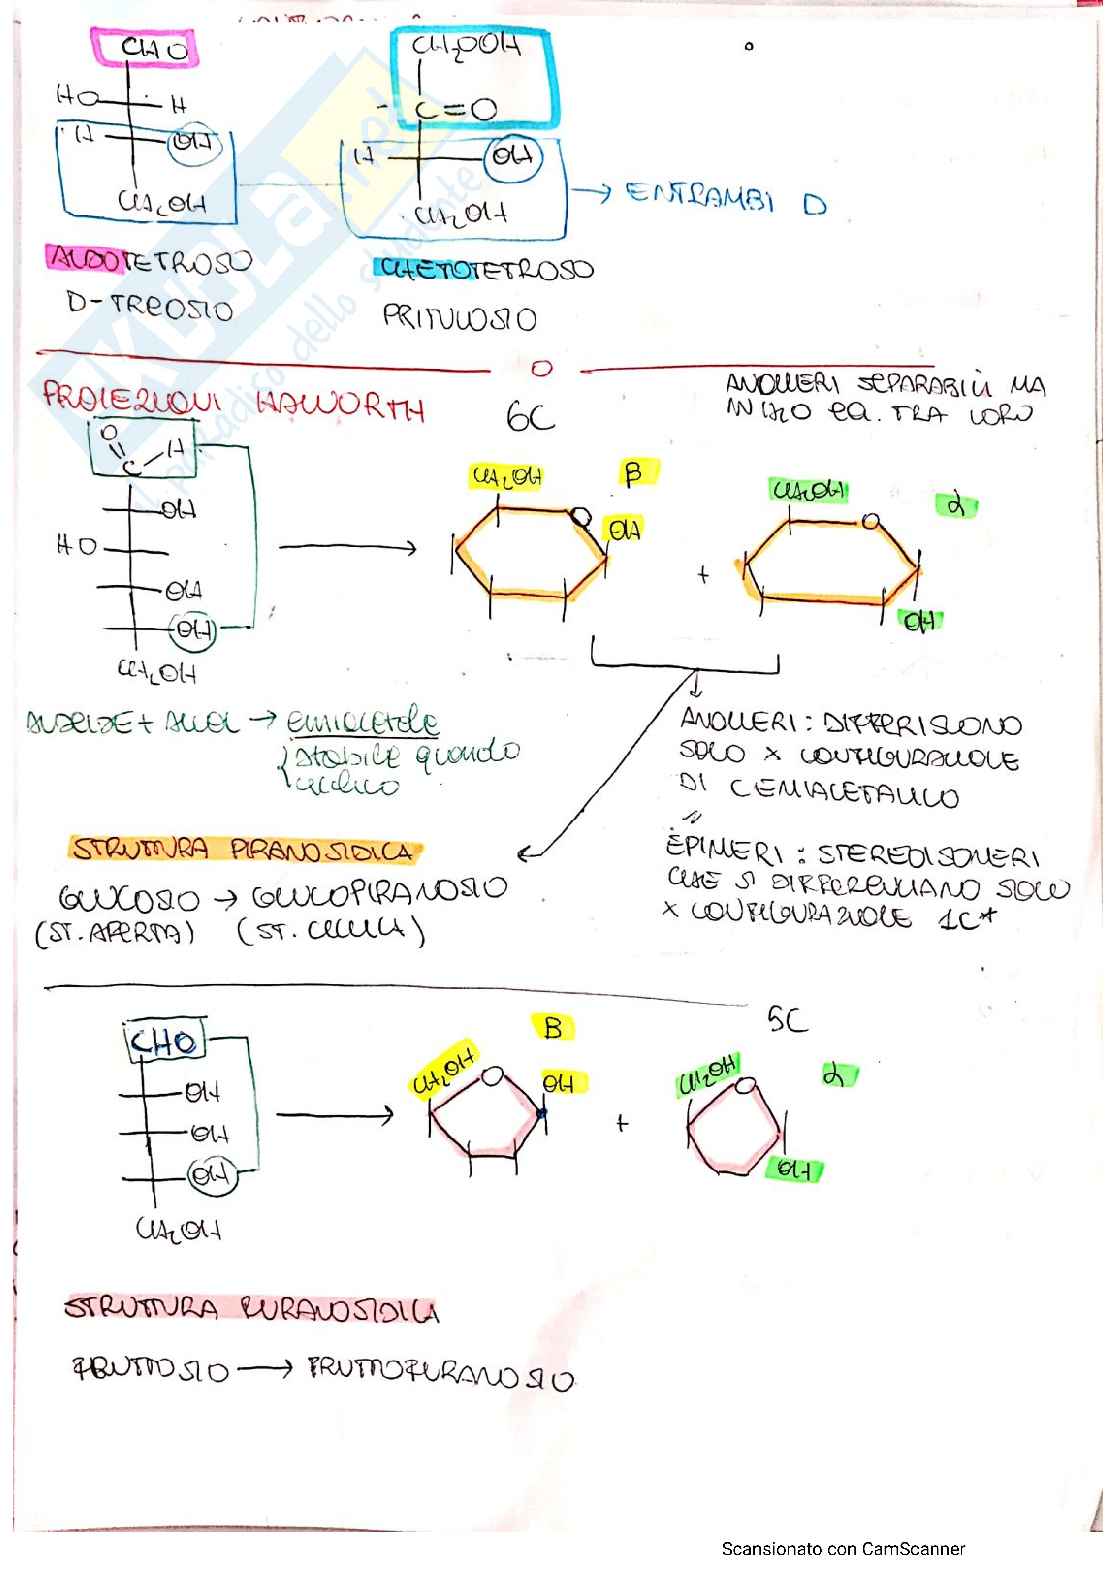 CHO
CH2OOH
HO H
C=O
H OH
H OH
CH2OH
CH2OH
→ ENTRAMBI D
ALDOTETROSO
CHETOTETROSO
D-TREOSIO
PRITULOSIO
PROIEZIONI HAWORTH
6C
ANOMERI SEPARABILI MA
IN LORO EQ. TRA LORO
O
C H
OH
HO
OH
OH
CH2OH
CH2OH
β
O
OH
+
CH2OH
α
O
OH
ALDEIDE + ALCOL → emiacetale
stabile quando
ciclico
ANOMERI: DIFFERISCONO
SOLO X CONFIGURAZIONE
DI C EMIACETALICO
EPIMERI: STEREOISOMERI
CHE SI DIFFERENZIANO SOLO
X CONFIGURAZIONE 1C*
STRUTTURA PIRANOSIDICA
GLUCOSIO → GLUCOPIRANOSIO
(ST. APERTA) (ST. CICLICA)
5C
CHO
OH
OH
OH
CH2OH
β
CH2OH
O
OH
+
α
CH2OH
O
OH
STRUTTURA FURANOSIDICA
FRUTTOSIO → FRUTTOFURANOSIO
SKUOLA.net
il paradiso dello studente
Scansionato con CamScanner